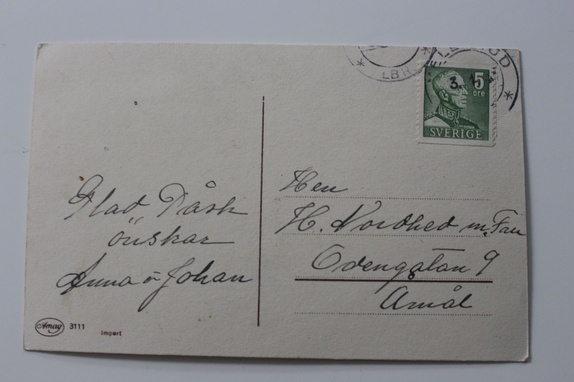 5
öre
SVERIGE
Glad Påsk
önskar
Anna o Johan
Herr
H. Nordhed m. Fru
Odengatan 9
Åmål
Amag 3111
Import